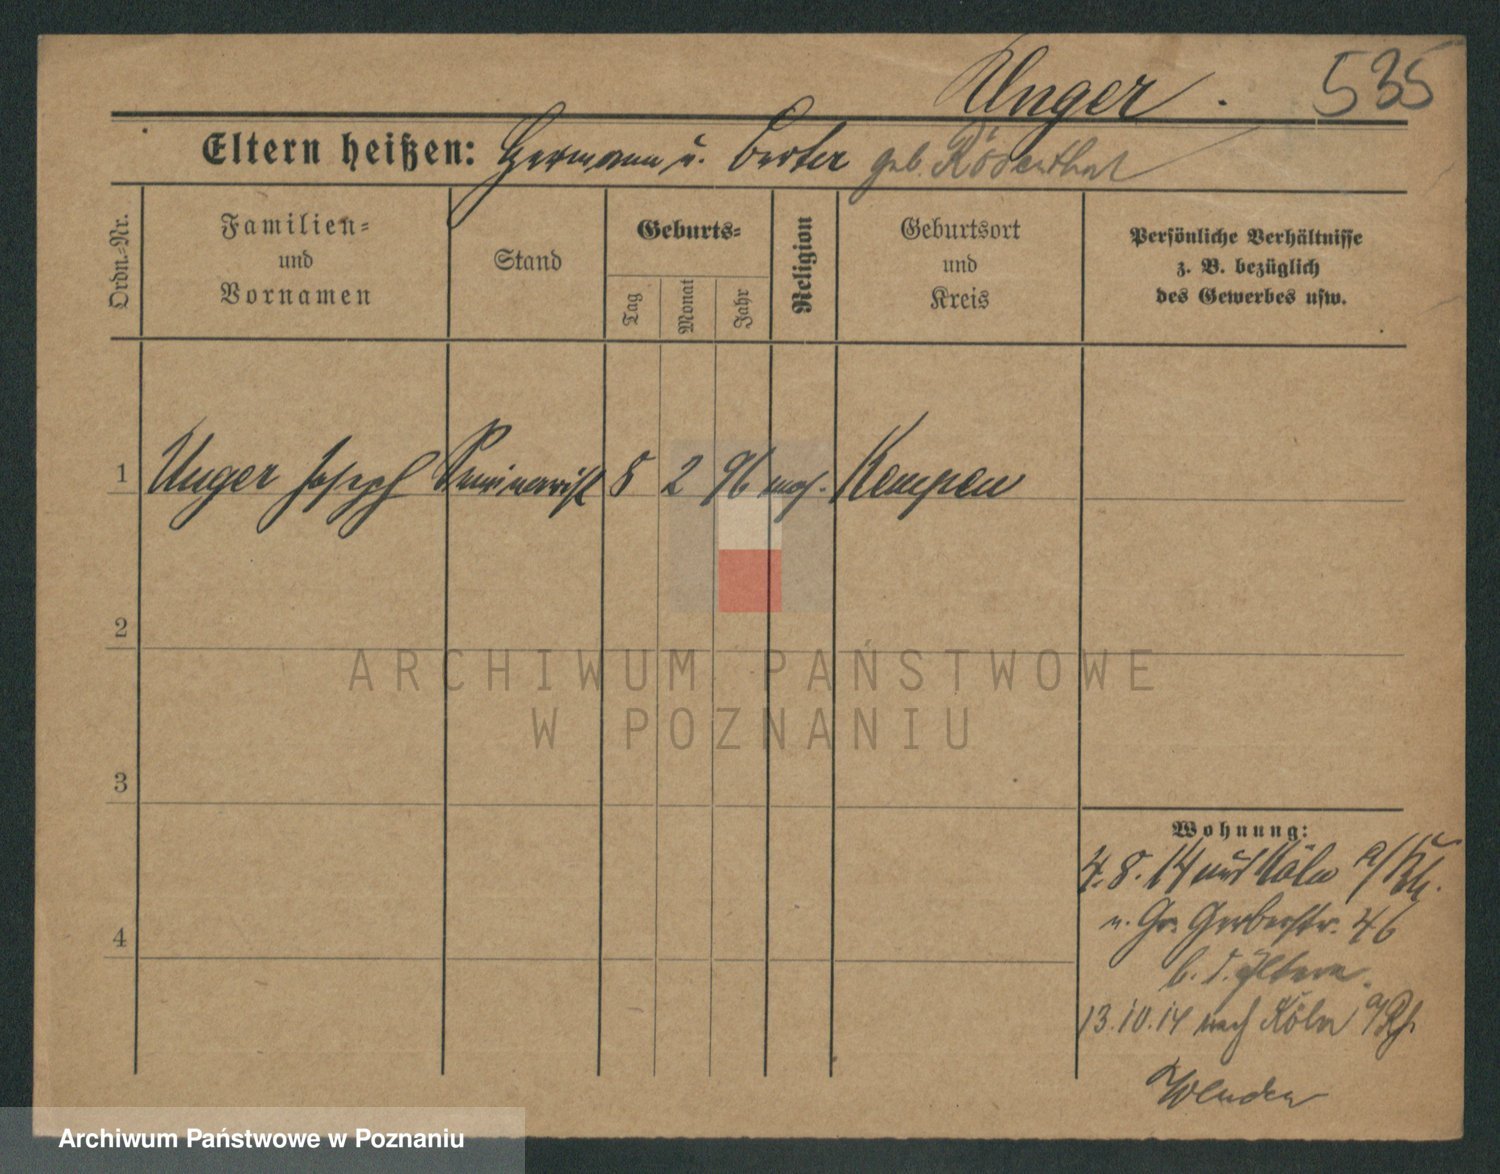 Unger. 535
Eltern heißen: Hermann u. Berta geb. Rosenthal
Ordn.-Nr.
Familien-
und
Vornamen
Stand
Geburts-
Tag
Monat
Jahr
Religion
Geburtsort
und
Kreis
Persönliche Verhältnisse
z. B. bezüglich
des Gewerbes usw.
1 Unger Joseph Seminarist 8 2 96 mos. Kempen
2
3
4
ARCHIWUM PAŃSTWOWE
W POZNANIU
Wohnung:
4.8.14 aus Köln a/Rh.
n. Gr. Gerberstr. 46
b. d. Eltern.
13.10.14 nach Köln a/Rh.
Archiwum Państwowe w Poznaniu